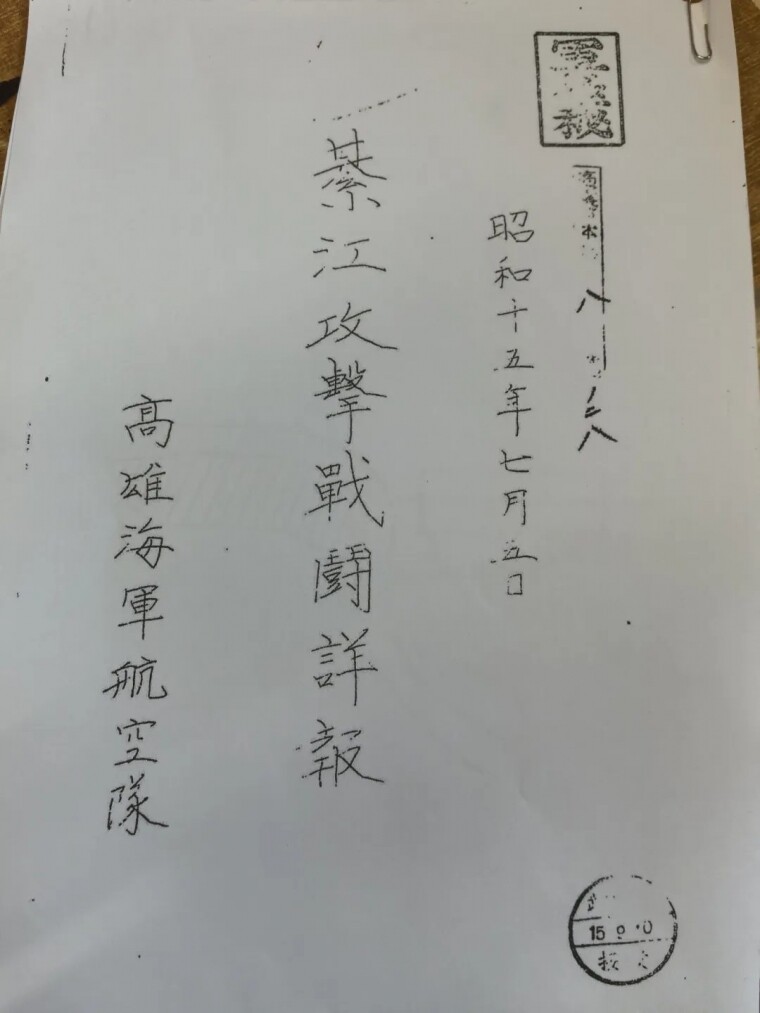 軍極秘
八
昭和十五年七月五日
綦江攻擊戰鬪詳報
高雄海軍航空隊
15